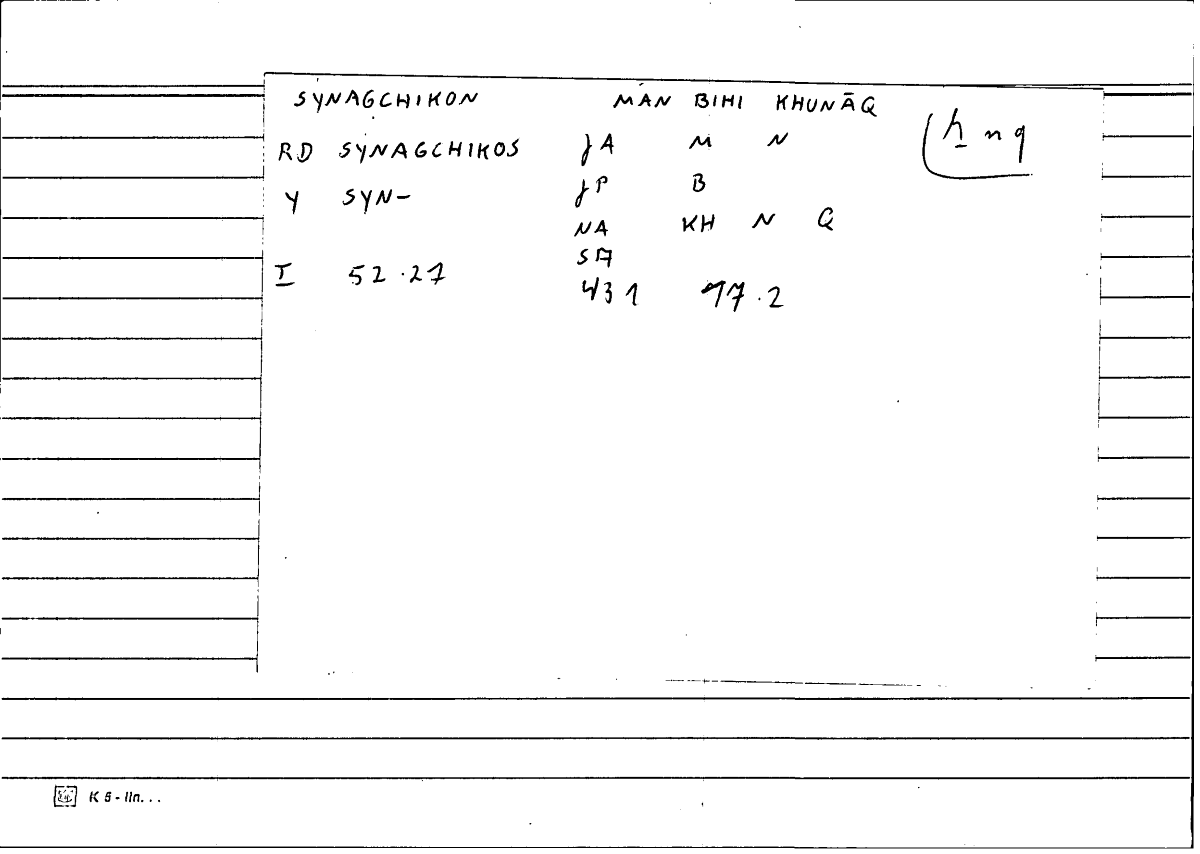 SYNAGCHIKON MAN BIHI KHUNĀQ
ẖ n q
RD SYNAGCHIKOS JA M N
Y SYN- JP B
NA KH N Q
I 52.27 SA
431 97.2
K 5 - lin...